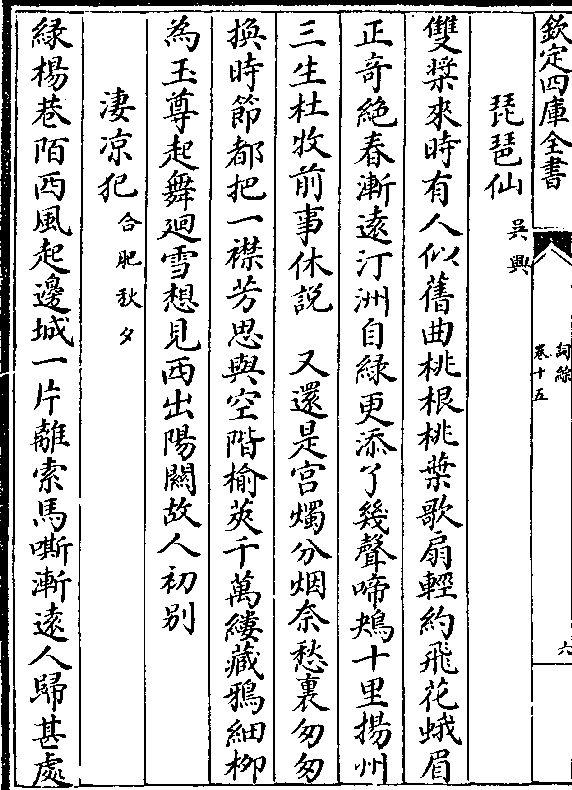 欽定四庫全書
詞綜
卷十五
六
琵琶仙 吳興
雙槳來時有人似舊曲桃根桃葉歌扇輕約飛花蛾眉
正奇絶春漸逺汀洲自緑更添了幾聲啼鴂十里揚州
三生杜牧前事休說 又還是宫燭分烟奈愁裏匆匆
換時節都把一襟芳思與空階榆莢千萬縷藏鴉細柳
為玉尊起舞廻雪想見西出陽闗故人初别
淒凉犯 合肥秋夕
緑楊巷陌西風起邊城一片離索馬嘶漸逺人歸甚處